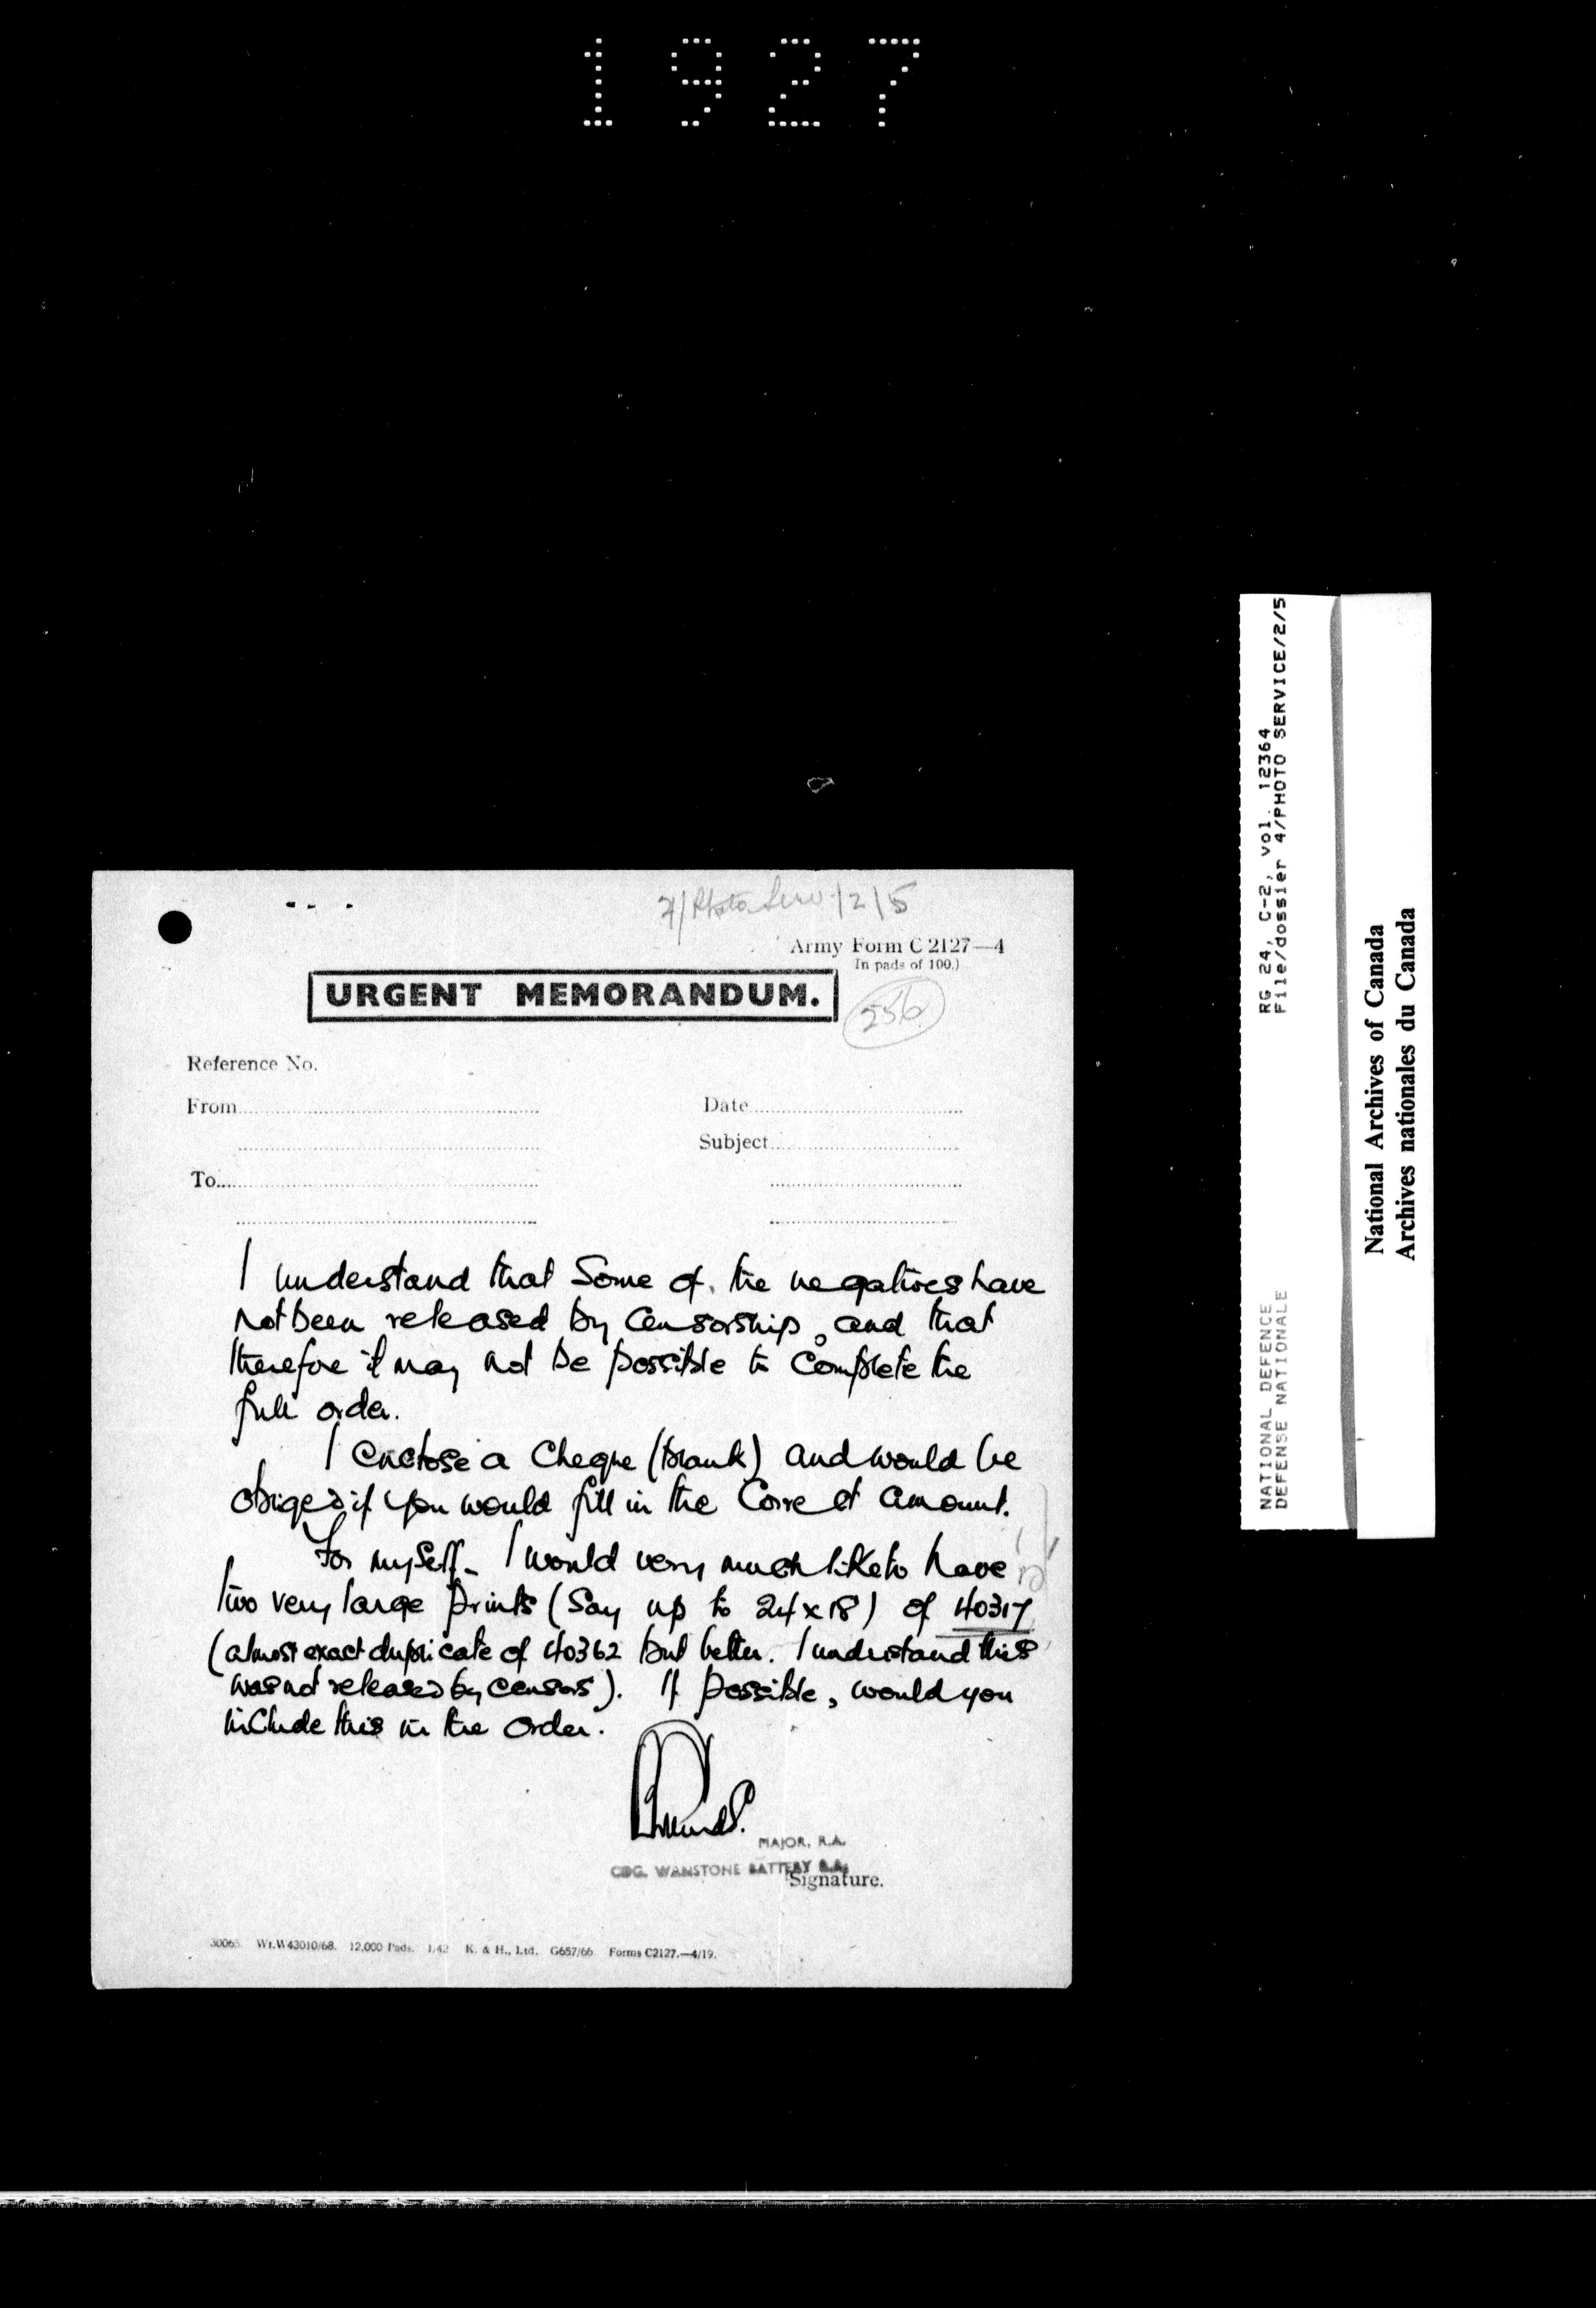 1927
4/Photo Serv/2/5
Army Form C 2127—4
In pads of 100.)
URGENT MEMORANDUM.
256
Reference No.
From
Date
Subject
To
I understand that Some of the negatives have
not been released by Censorship, and that
therefore it may not be possible to Complete the
full order.
I enclose a Cheque (blank) and would be
obliged if you would fill in the Correct amount.
For myself - I would very much like to have
two very large prints (Say up to 24 x 18) of 40317
(almost exact duplicate of 40362 but better. I understand this
was not released by censors). If possible, would you
include this in the order.
MAJOR, R.A.
CDG. WANSTONE BATTERY R.A.
Signature.
30065 Wt.W43010/68. 12,000 Pads. 1/42 K. & H., Ltd. G657/66 Forms C2127.—4/19.
RG 24, C-2, vol. 12364
File/dossier 4/PHOTO SERVICE/2/5
NATIONAL DEFENCE
DEFENSE NATIONALE
National Archives of Canada
Archives nationales du Canada